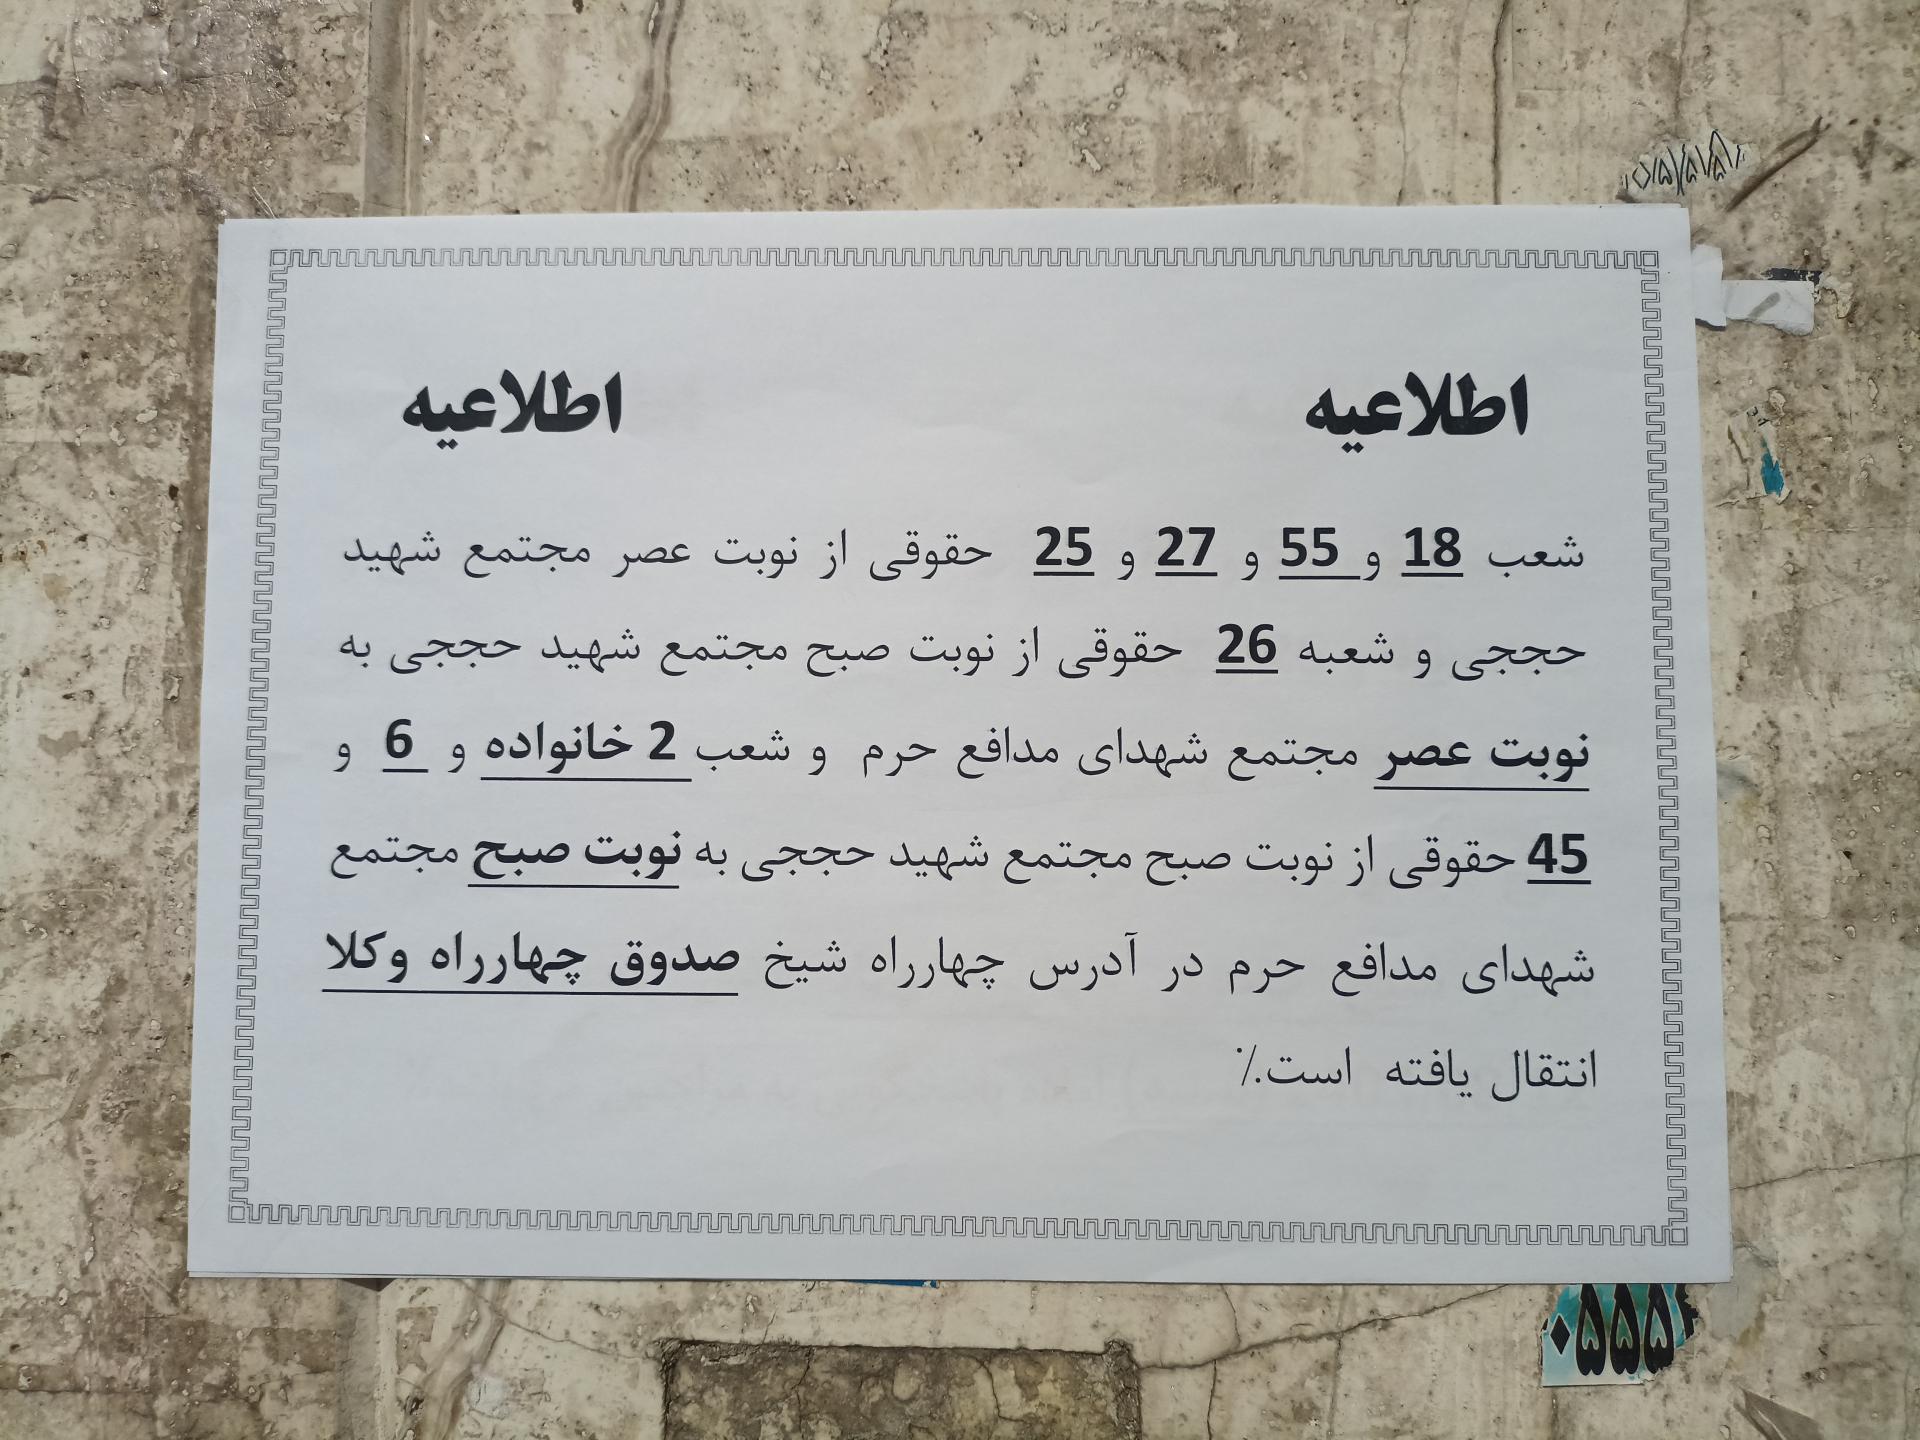 اطلاعیه اطلاعیه
شعب 18 و 55 و 27 و 25 حقوقی از نوبت عصر مجتمع شهید
حججی و شعبه 26 حقوقی از نوبت صبح مجتمع شهید حججی به
نوبت عصر مجتمع شهدای مدافع حرم و شعب 2 خانواده و 6 و
45 حقوقی از نوبت صبح مجتمع شهید حججی به نوبت صبح مجتمع
شهدای مدافع حرم در آدرس چهارراه شیخ صدوق چهارراه وکلا
انتقال یافته است./
۰۵۵۵